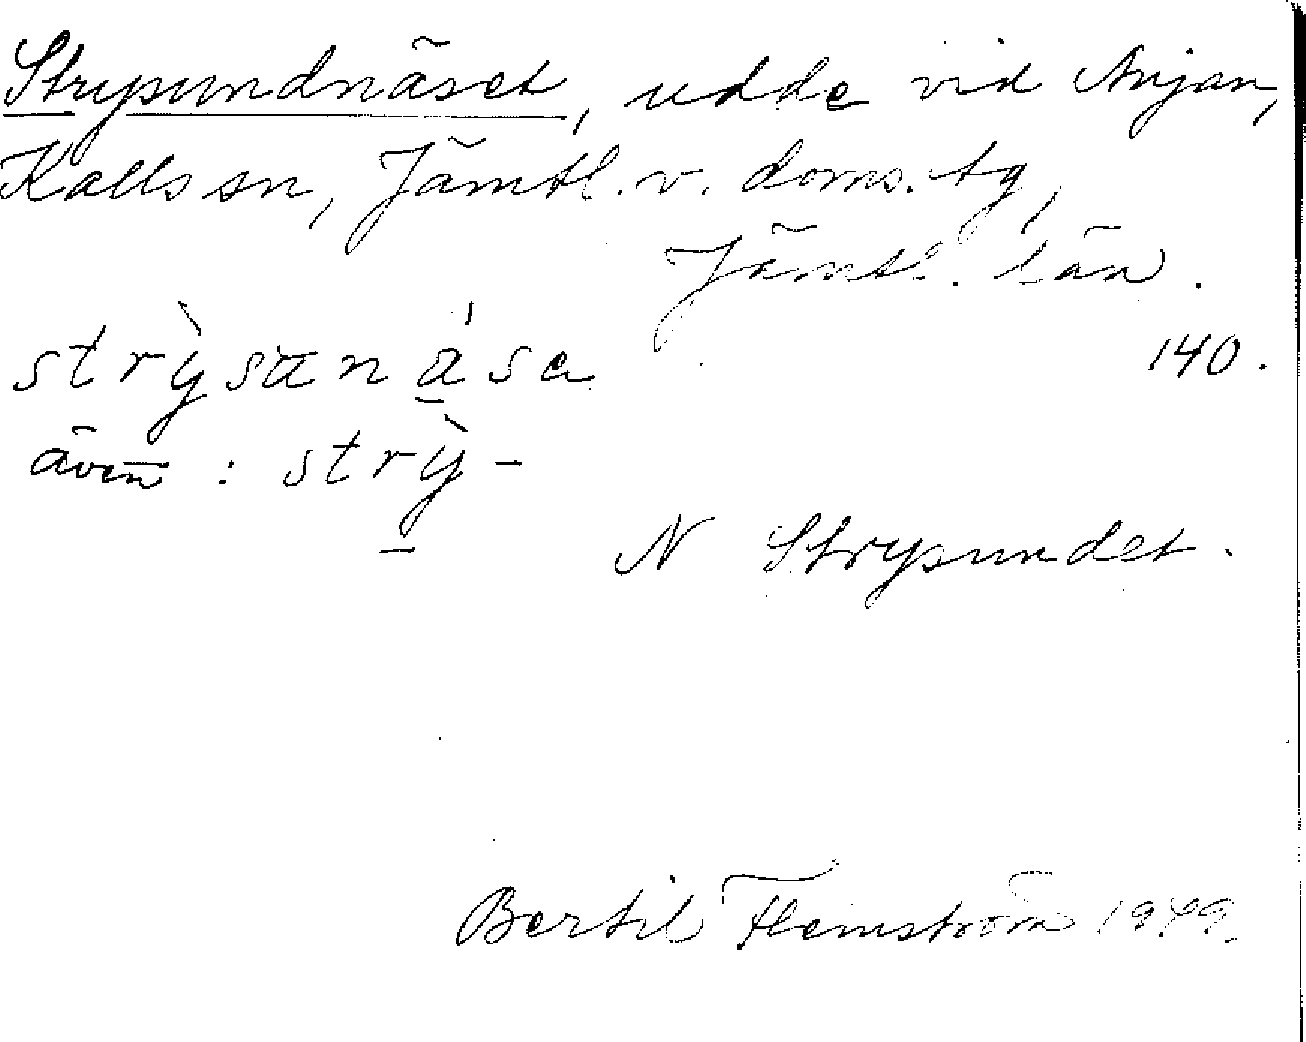 Strysundnäset, udde vid Anjan,
Kalls sn, Jämtl. v. doms. tg,
Jämtl. län.
strỳsanása 140.
även : strỳ-
N Strysundet.
Bertil Flemström 1949.